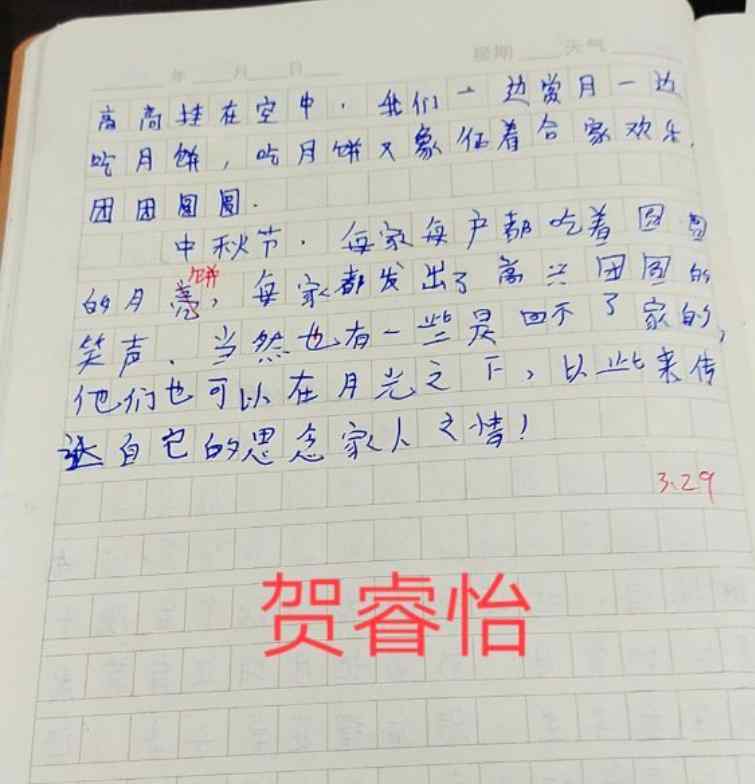 年 月 日 星期 天气
高高挂在空中.我们一边赏月一边
吃月饼,吃月饼又象征着合家欢乐,
团团圆圆.
中秋节.每家每户都吃着圆圆
饼
的月亮,每家都发出了高兴团圆的
笑声、当然也有一些是回不了家的,
他们也可以在月光之下,以此来传
达自它的思念家人之情!
3.29
贺睿怡